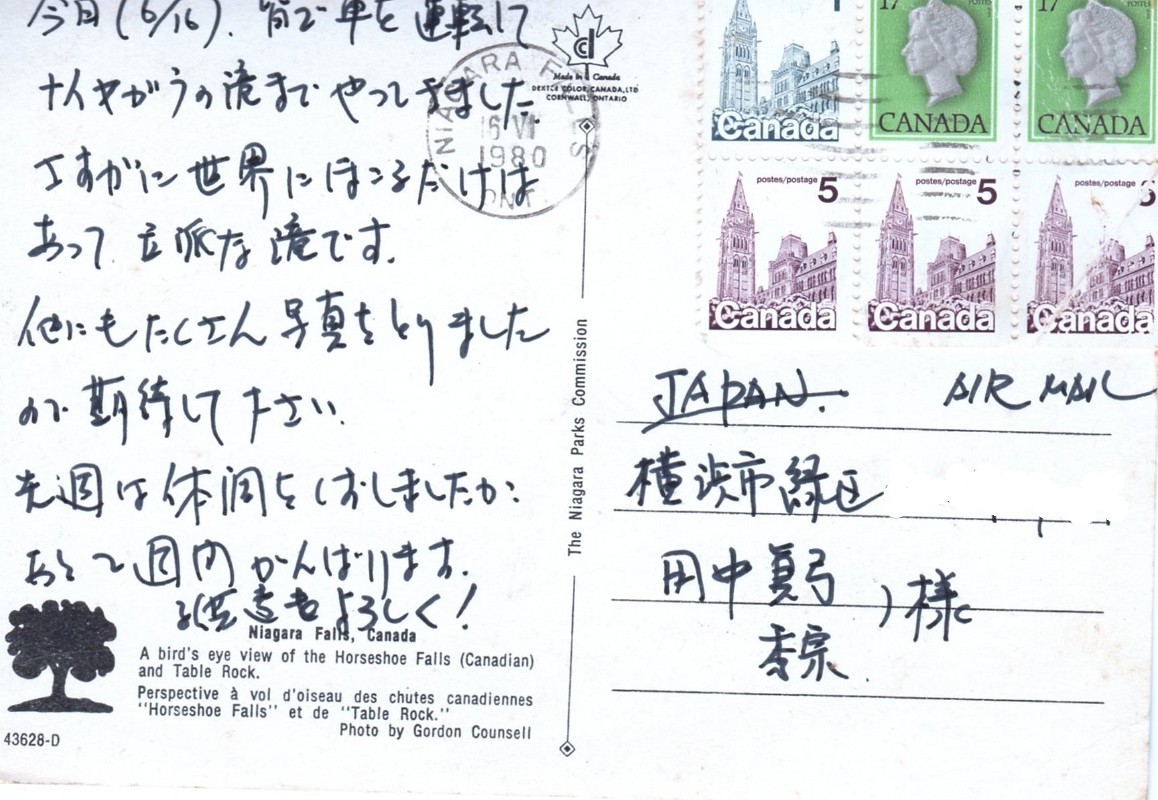 今日(6/16)、皆で車を運転して
ナイヤガラの滝までやってきました
さすがに世界にほこるだけは
あって立派な滝です。
他にもたくさん写真をとりました
ので期待して下さい。
先週は体調をくずしましたが
あと2週間がんばります。
子供達もよろしく!
Niagara Falls, Canada
A bird's eye view of the Horseshoe Falls (Canadian)
and Table Rock.
Perspective à vol d'oiseau des chutes canadiennes
"Horseshoe Falls" et de "Table Rock."
Photo by Gordon Counsell
43628-D
The Niagara Parks Commission
Made in Canada
DEXTER COLOR, CANADA, LTD
CORNWALL, ONTARIO
NIAGARA FALLS
16 VI
1980
ONT
1
17
17
Canada
CANADA
CANADA
postes/postage 5
postes/postage 5
postes/postage 5
Canada
Canada
Canada
JAPAN. AIR MAIL
横浜市緑区
田中真弓
様